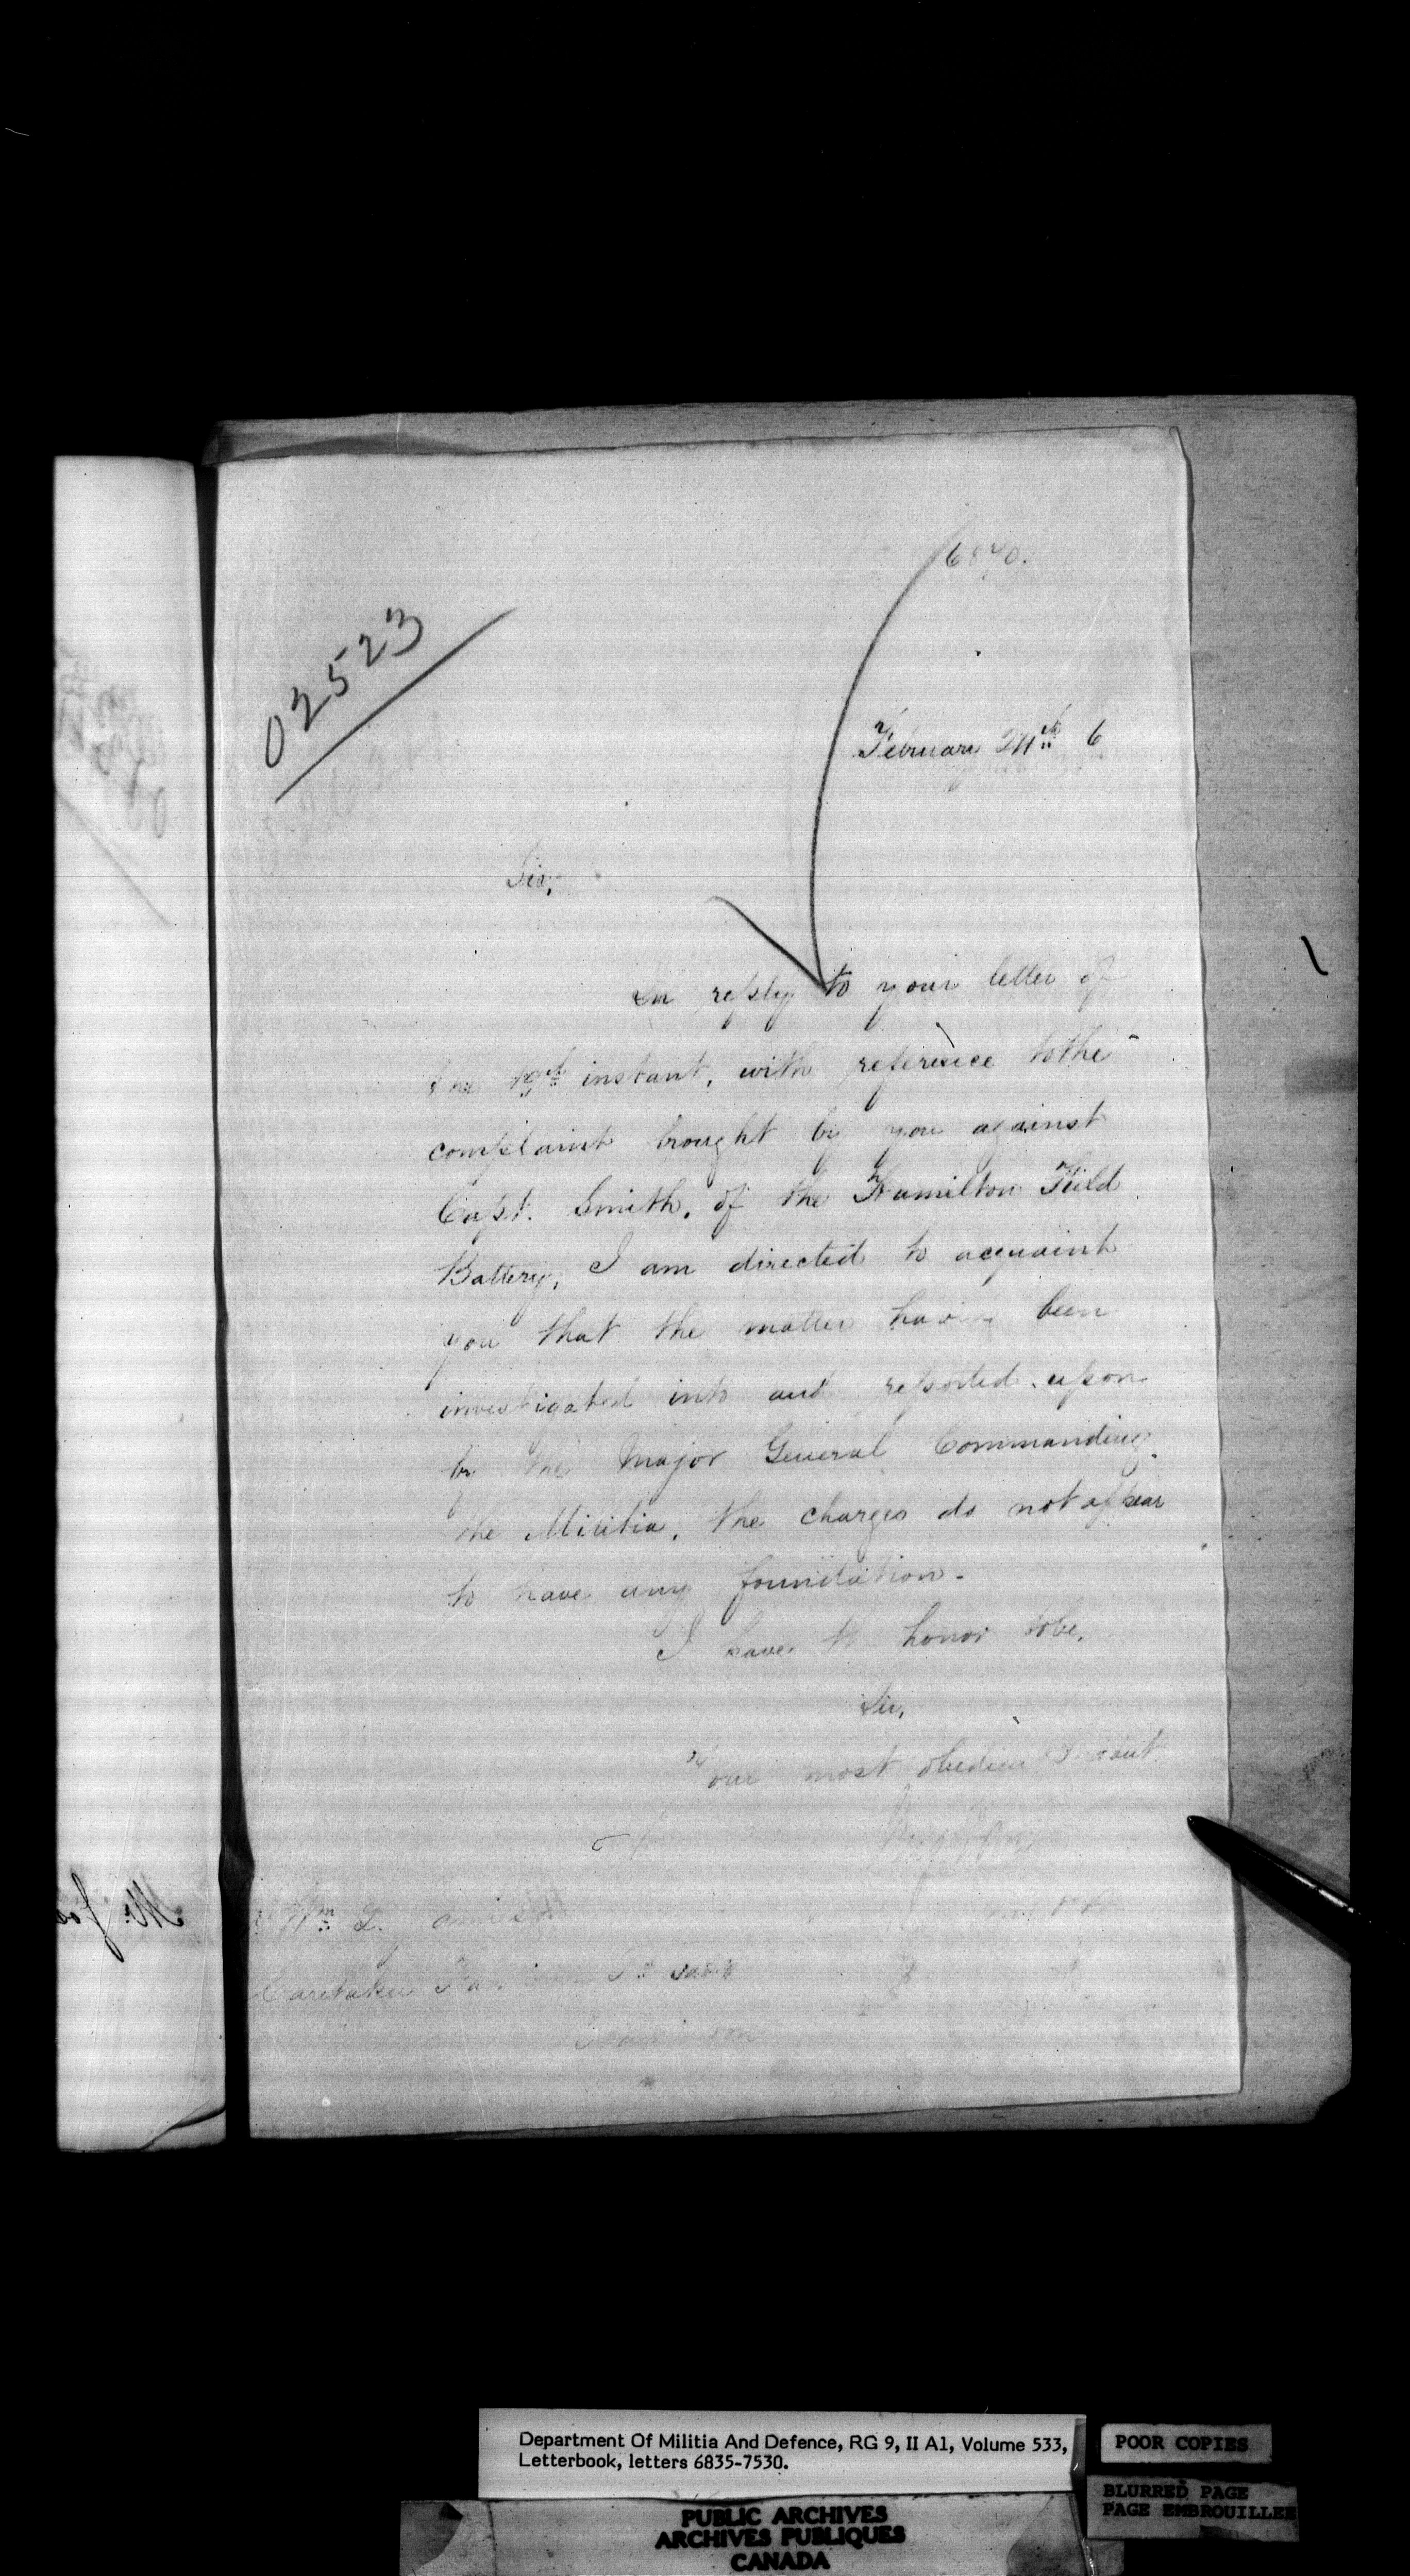 6840.
02523
February 6
Sir,
In reply to your letter of
the 19th instant, with reference to the
complaint brought by you against
Capt. Smith, of the Hamilton Field
Battery, I am directed to acquaint
you that the matter having been
investigated into and reported upon
by the Major General Commanding
the Militia, the charges do not appear
to have any foundation.
I have the honor to be,
Sir,
Your most obedient Servant
Wm
Caretaker
Hamilton
Mr. Jos
Department Of Militia And Defence, RG 9, II A1, Volume 533,
Letterbook, letters 6835-7530.
POOR COPIES
BLURRED PAGE
PAGE EMBROUILLEE
PUBLIC ARCHIVES
ARCHIVES PUBLIQUES
CANADA